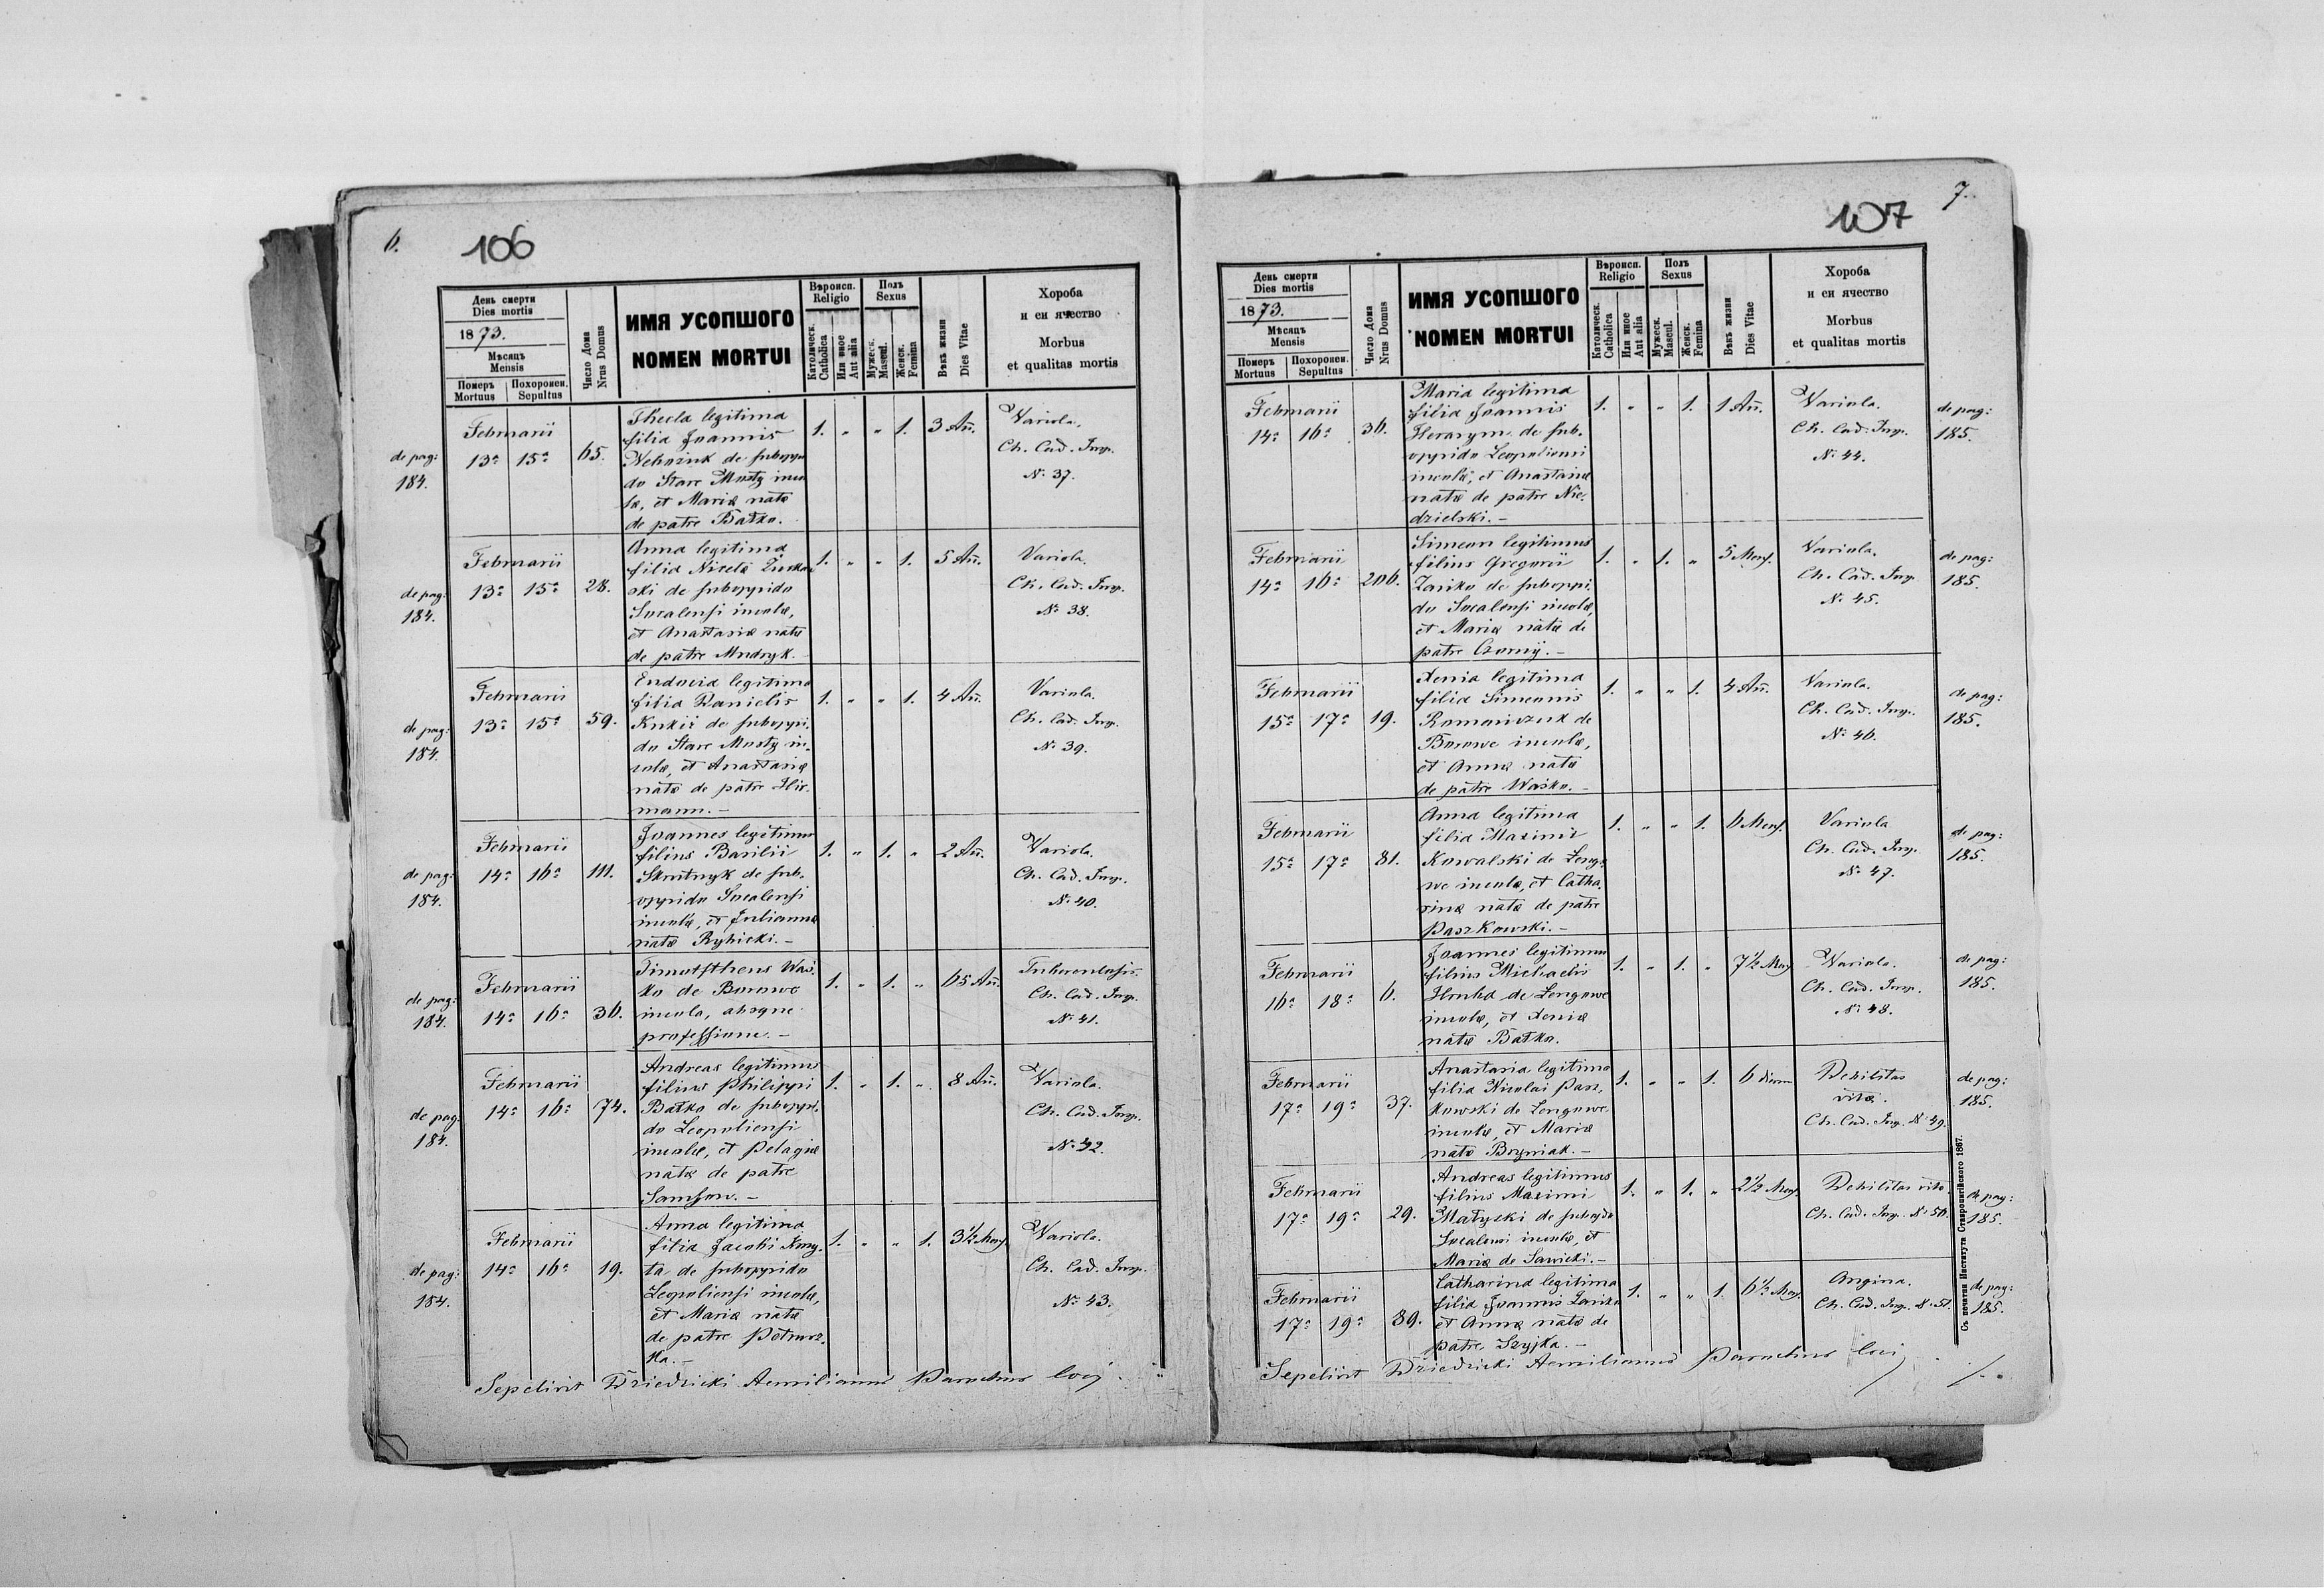 6.
106
День смерти
Dies mortis
1873.
Мѣсяць
Mensis
Померъ
Mortuus
Похоронен.
Sepultus
Число Дома
Nrus Domus
ИМЯ УСОПШОГО
NOMEN MORTUI
Вѣроисп.
Religio
Католическ.
Catholica
Или иное
Aut alia
Полъ
Sexus
Мужеск.
Mascul.
Женск.
Femina
Вѣкъ жизни
Dies Vitae
Хороба
и єи ячество
Morbus
et qualitas mortis
de pag:
184.
Februarii
13ª 15ª 65.
Thecla legitima
filia Joannis
de suboppi
do Stare Mosty inco
la, et Mariæ natæ
de patre Batko.
1. " " 1. 3 An̄.
Variola.
Ch. Cad. Insp.
Nº 37.
de pag:
184.
Februarii
13ª 15ª 28.
Anna legitima
filia Nicetæ
ski de suboppido
Socalensi incolæ,
et Anastasiæ natæ
de patre Mudryk.
1. " " 1. 5 An̄.
Variola.
Ch. Cad. Insp.
Nº 38.
de pag:
184.
Februarii
13ª 15ª 59.
Eudocia legitima
filia Danielis
Kukii de suboppi
do Stare Mosty in
colæ, et Anastasiæ
natæ de patre Hir
mann. –
1. " " 1. 4 An̄.
Variola.
Ch. Cad. Insp.
Nº 39.
de pag:
184.
Februarii
14ª 16ª 111.
Joannes legitimus
filius Basilii
Skrutnyk de sub
oppido Socalensi
incolæ, et Juliannæ
natæ Rybicki. –
1. " 1. " 2 An̄.
Variola.
Ch. Cad. Insp.
Nº 40.
de pag:
184.
Februarii
14ª 16ª 36.
Timottheus Waś
ko de Borowe
incola, absque
professione. –
1. " 1. " 65 An̄.
Tuberculosis.
Ch. Cad. Insp.
Nº 41.
de pag:
184.
Februarii
14ª 16ª 74.
Andreas legitimus
filius Philippi
Batko de suboppi
do Leopoliensi
incolæ, et Pelagiæ
natæ de patre
Samson. –
1. " 1. " 8 An̄.
Variola.
Ch. Cad. Insp.
Nº 42.
de pag:
184.
Februarii
14ª 16ª 19.
Anna legitima
filia Jacobi Kmy
ta de suboppido
Leopoliensi incolæ,
et Mariæ natæ
de patre Petrusz
ka. –
1. " " 1. 3½ Mens.
Variola.
Ch. Cad. Insp.
Nº 43.
Sepelivit Dziedzicki Aemilianus Parochus loci
7.
107
День смерти
Dies mortis
1873.
Мѣсяць
Mensis
Померъ
Mortuus
Похоронен.
Sepultus
Число Дома
Nrus Domus
ИМЯ УСОПШОГО
NOMEN MORTUI
Вѣроисп.
Religio
Католическ.
Catholica
Или иное
Aut alia
Полъ
Sexus
Мужеск.
Mascul.
Женск.
Femina
Вѣкъ жизни
Dies Vitae
Хороба
и єи ячество
Morbus
et qualitas mortis
Februarii
14ª 16ª 36.
Maria legitima
filia Joannis
Herasym de sub
oppido Leopoliensi
incolæ, et Anastasiæ
natæ de patre Nie
dzielski. –
1. " " 1. 1 An̄.
Variola.
Ch. Cad. Insp.
Nº 44.
de pag:
185.
Februarii
14ª 16ª 206.
Simeon legitimus
filius Gregorii
Zariko de suboppi
do Socalensi incolæ,
et Mariæ natæ de
patre Czornij. –
1. " 1. " 5 Mens.
Variola.
Ch. Cad. Insp.
Nº 45.
de pag:
185.
Februarii
15ª 17ª 19.
Xenia legitima
filia Simeonis
Romaniczuk de
Borowe incolæ,
et Annæ natæ
de patre Waśko. –
1. " " 1. 4 An̄.
Variola.
Ch. Cad. Insp.
Nº 46.
de pag:
185.
Februarii
15ª 17ª 81.
Anna legitima
filia Maximi
Kowalski de Zengo
we incolæ, et Catha
rinæ natæ de patre
Paszkowski. –
1. " " 1. 6 Mens.
Variola
Ch. Cad. Insp.
Nº 47.
de pag:
185.
Februarii
16ª 18ª 6.
Joannes legitimus
filius Michaelis
Hruba de Lengowe
incolæ, et Xeniæ
natæ Batko.
1. " 1. " 7½ Mens
Variola.
Ch. Cad. Insp.
Nº 48.
de pag:
185.
Februarii
17ª 19ª 37.
Anastasia legitima
filia Nicolai Pasz
kowski de Lengowe
incolæ, et Mariæ
natæ Bryniak. –
1. " " 1. 6 dierum
Debilitas
vitæ.
Ch. Cad. Insp. Nº 49.
de pag:
185.
Februarii
17ª 19ª 29.
Andreas legitimus
filius Maximi
Matyski de subopdo
Socalensi incolæ, et
Mariæ de Sawicki. –
1. " 1. " 2½ Mens.
Debilitas vitæ
Ch. Cad. Insp. Nº 50.
de pag:
185.
Februarii
17ª 19ª 89.
Catharina legitima
filia Joannis Zariko
et Annæ natæ de
patre Szyjka. –
1. " " 1. 6½ Mens.
Angina.
Ch. Cad. Insp. Nº 51.
de pag:
185.
Sepelivit Dziedzicki Aemilianus Parochus loci
Съ печатни Института Ставропигійского 1867.